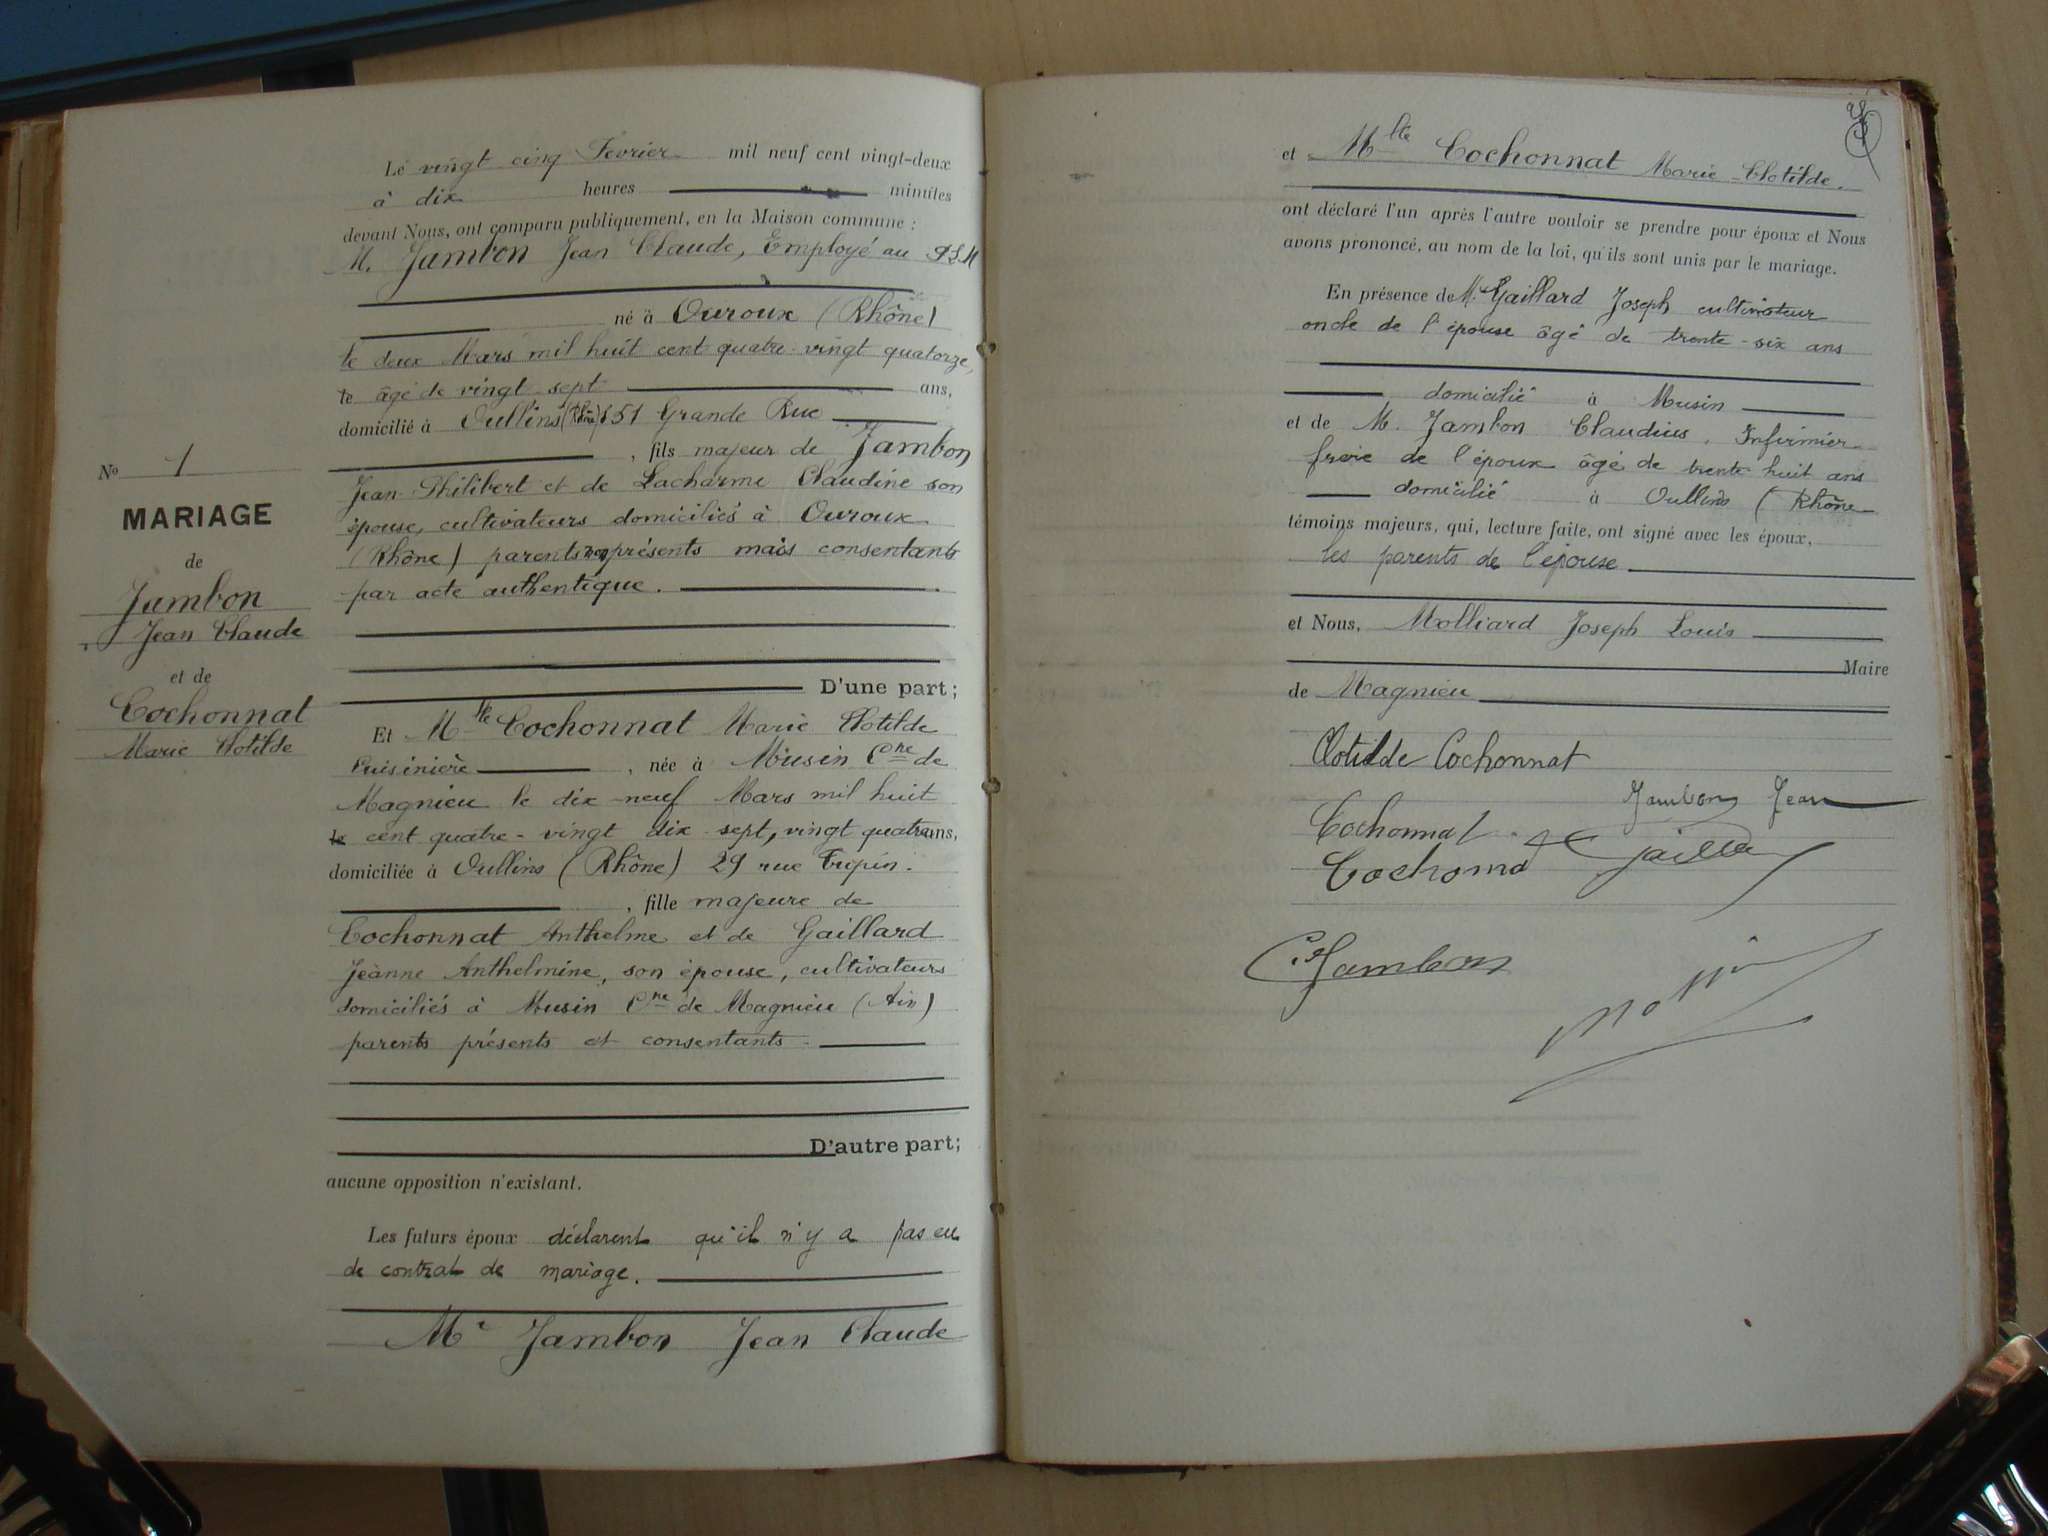 N° 1
MARIAGE
de
Jambon
Jean Claude
et de
Cochonnat
Marie Clotilde
Le vingt cinq Fevrier mil neuf cent vingt-deux
à dix heures minutes
devant Nous, ont comparu publiquement, en la Maison commune :
M. Jambon Jean Claude, Employé au PLM
né à Ouroux (Rhône)
le deux Mars mil huit cent quatre-vingt quatorze,
le âgé de vingt sept ans,
domicilié à Oullins (Rhône) 151 Grande Rue
, fils majeur de Jambon
Jean-Philibert et de Lacharme Claudine son
épouse, cultivateurs domiciliés à Ouroux
(Rhône) parents non présents mais consentants
par acte authentique.
D'une part;
Et Mlle Cochonnat Marie Clotilde
Cuisinière , née à Musin Cne de
Magnieu le dix-neuf Mars mil huit
le cent quatre-vingt dix-sept, vingt quatre ans,
domiciliée à Oullins (Rhône) 29 rue
, fille majeure de
Cochonnat Anthelme et de Gaillard
Jeanne Anthelmine, son épouse, cultivateurs
domiciliés à Musin Cne de Magnieu (Ain)
parents présents et consentants
D'autre part;
aucune opposition n'existant.
Les futurs époux déclarent qu'il n'y a pas eu
de contrat de mariage.
Mr Jambon Jean Claude
et Mlle Cochonnat Marie-Clotilde.
ont déclaré l'un après l'autre vouloir se prendre pour époux et Nous
avons prononcé, au nom de la loi, qu'ils sont unis par le mariage.
En présence de Mr Gaillard Joseph cultivateur
oncle de l'épouse âgé de trente-six ans
domicilié à Musin
et de M. Jambon Claudius, Infirmier
frère de l'époux âgé de trente huit ans
domicilié à Oullins (Rhône
témoins majeurs, qui, lecture faite, ont signé avec les époux,
les parents de l'épouse
et Nous, Molliard Joseph Louis
Maire
de Magnieu
Clotilde Cochonnat
Jambon Jean
Cochonnat
Cochonna
C. Jambon